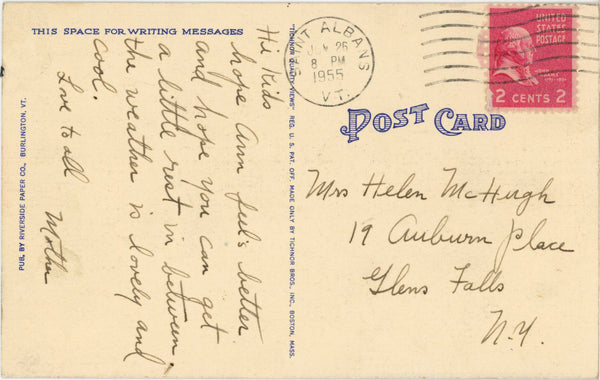 THIS SPACE FOR WRITING MESSAGES
Hi Kids
hope Ann feel's better
and hope you can get
a little rest in between.
the weather is lovely and
cool.
Love to all
Mother
PUB. BY RIVERSIDE PAPER CO., BURLINGTON, VT.
"TICHNOR QUALITY VIEWS" REG. U. S. PAT. OFF. MADE ONLY BY TICHNOR BROS., INC., BOSTON, MASS.
SAINT ALBANS
26
8 PM
1955
VT.
UNITED
STATES
POSTAGE
2 CENTS 2
POST CARD
Mrs Helen McHugh
19 Auburn Place
Glens Falls
N.Y.